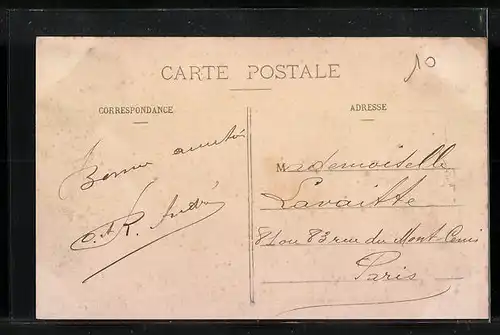 CARTE POSTALE
10
CORRESPONDANCE
ADRESSE
Bonne amitié
Mademoiselle
Lavaitte
81 ou 83 rue du Mont-Cenis
Paris
R. André